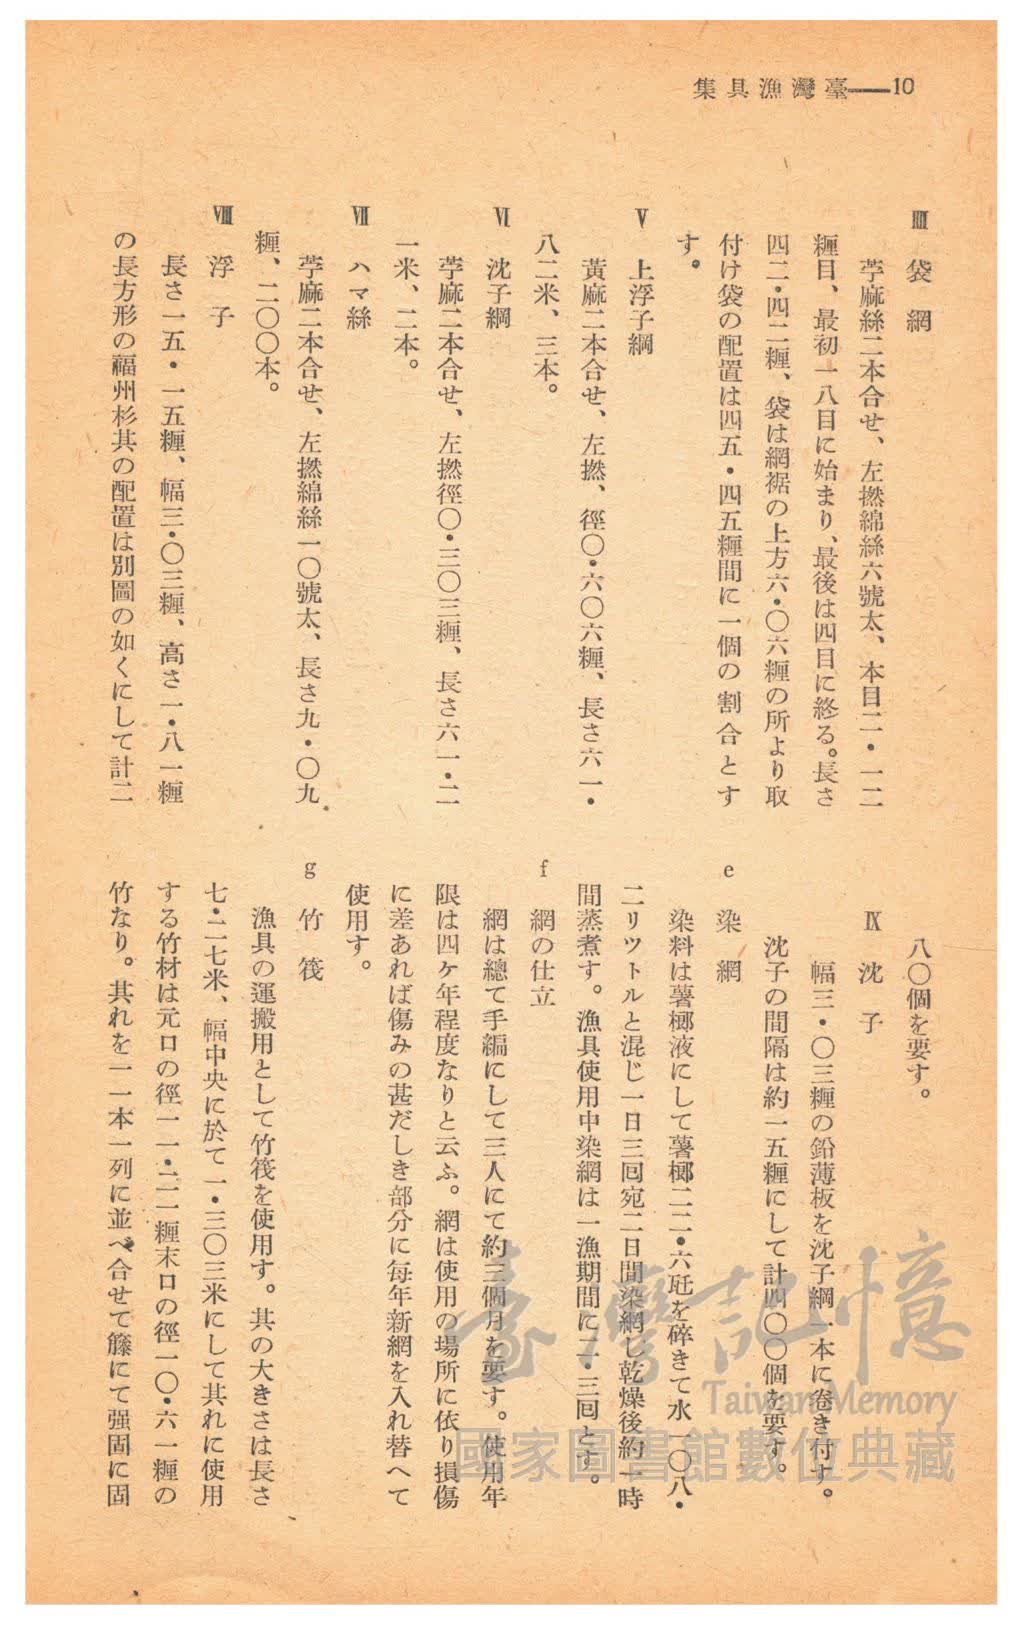 10——臺灣漁具集
Ⅲ 袋網
苧麻絲二本合せ、左撚綿絲六號太、本目二・一二
糎目、最初一八目に始まり、最後は四目に終る。長さ
四二・四二糎、袋は網裾の上方六・〇六糎の所より取
付け袋の配置は四五・四五糎間に一個の割合とす
す。
Ⅴ 上浮子綱
黃麻二本合せ、左撚、徑〇・六〇六糎、長さ六一・
八二米、三本。
Ⅵ 沈子綱
苧麻二本合せ、左撚徑〇・三〇三糎、長さ六一・二
一米、二本。
Ⅶ ハマ絲
苧麻二本合せ、左撚綿絲一〇號太、長さ九・〇九
糎、二〇〇本。
Ⅷ 浮子
長さ一五・一五糎、幅三・〇三糎、高さ一・八一糎
の長方形の福州杉其の配置は別圖の如くにして計二
八〇個を要す。
Ⅸ 沈子
幅三・〇三糎の鉛薄板を沈子綱一本に卷き付す。
沈子の間隔は約一五糎にして計四〇〇個を要す。
e 染網
染料は薯榔液にして薯榔二二・六瓩を碎きて水一〇八・
二リツトルと混じ一日三囘宛二日間染網し乾燥後約一時
間蒸煮す。漁具使用中染網は一漁期間に二・三囘とす。
f 網の仕立
網は總て手編にして三人にて約三個月を要す。使用年
限は四ケ年程度なりと云ふ。網は使用の場所に依り損傷
に差あれば傷みの甚だしき部分に每年新網を入れ替へて
使用す。
g 竹筏
漁具の運搬用として竹筏を使用す。其の大きさは長さ
七・二七米、幅中央に於て一・三〇三米にして其れに使用
する竹材は元口の徑一一・二一糎末口の徑一〇・六一糎の
竹なり。其れを一一本一列に並べ合せて籐にて强固に固
臺灣記憶
Taiwan Memory
國家圖書館數位典藏